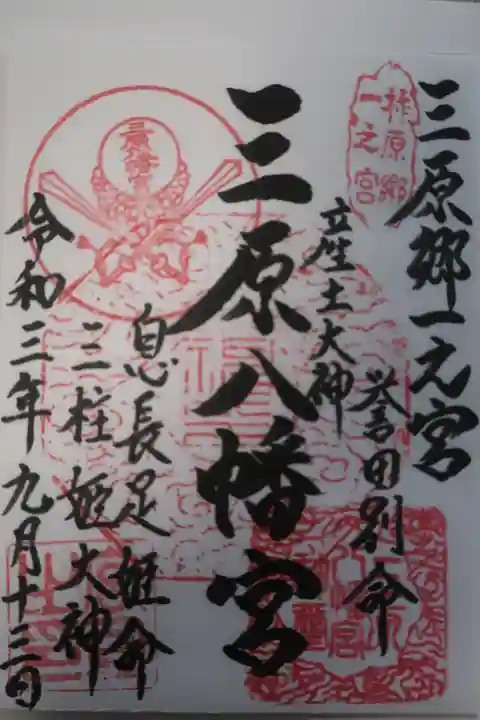 三原郷一之宮
柞原郷
一之宮
誉田別命
産土大神
三原八幡宮
息長足姫命
三柱姫大神
令和三年九月十三日
三原八幡宮